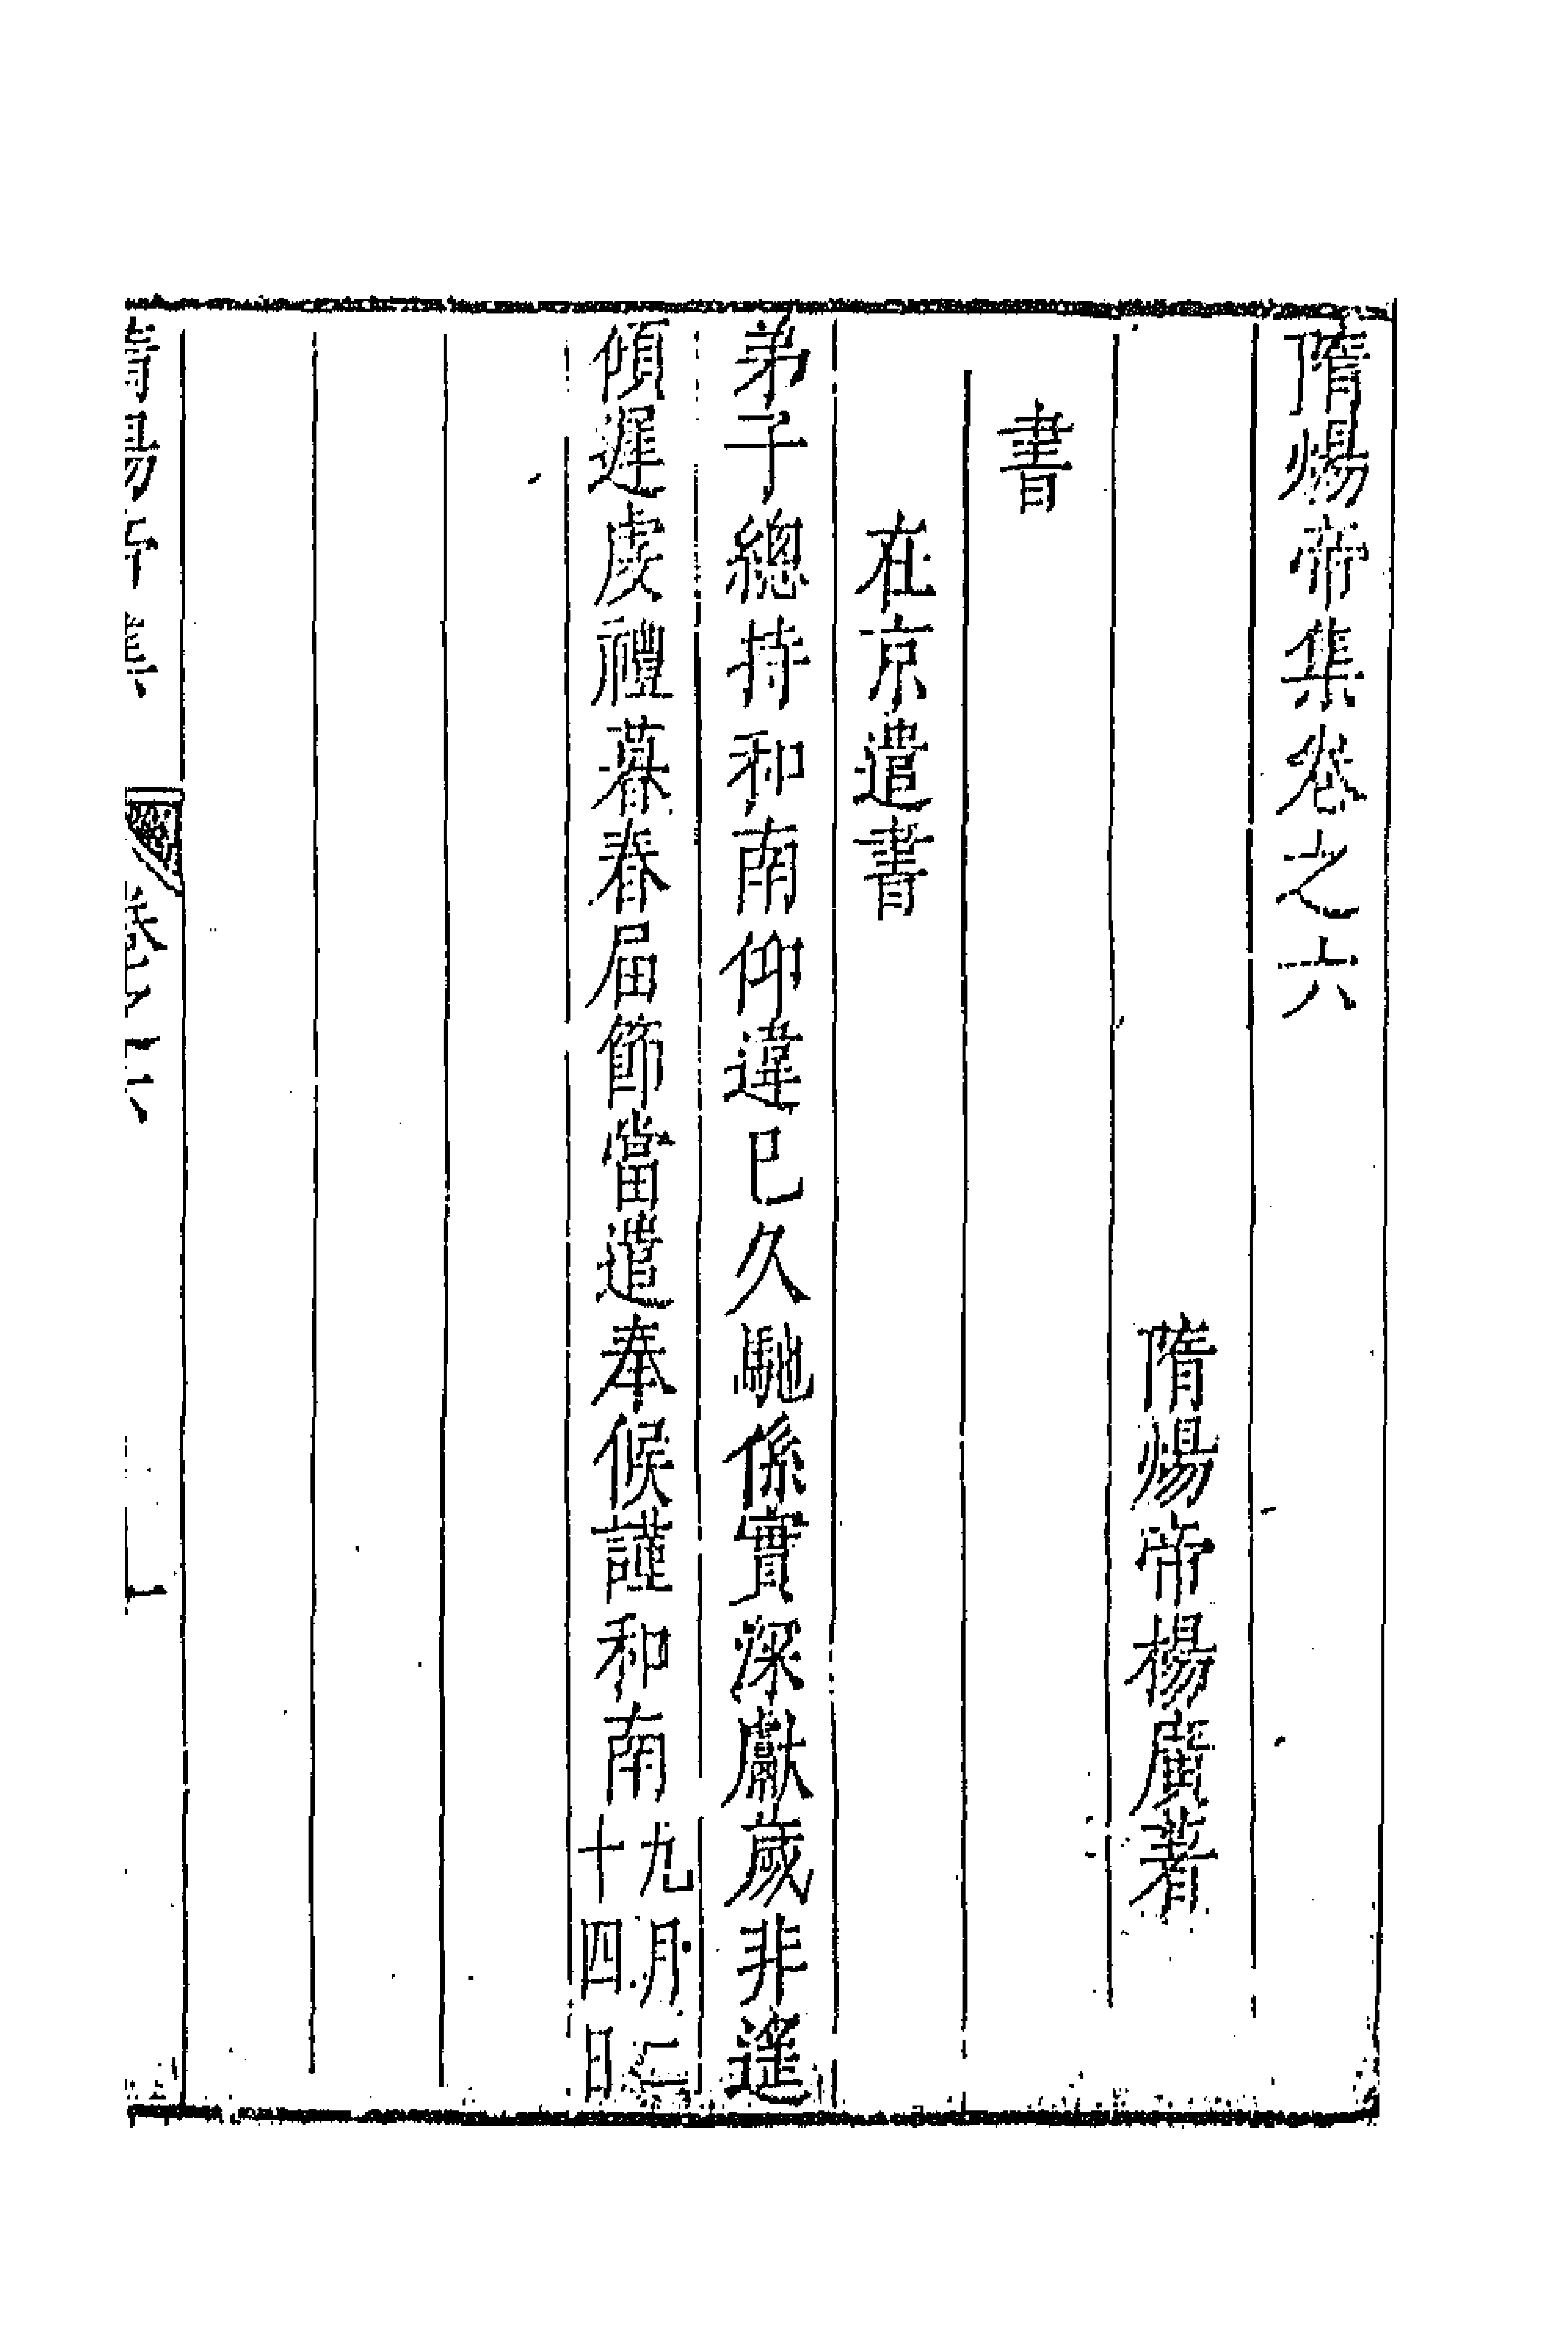 隋煬帝集卷之六
隋煬帝楊廣著
書
在京遣書
弟子總持和南仰違已久馳係實深獻歲非遥
傾遲虔禮暮春届節當遣奉候謹和南九月二
十四日
隋煬帝集
卷六
一